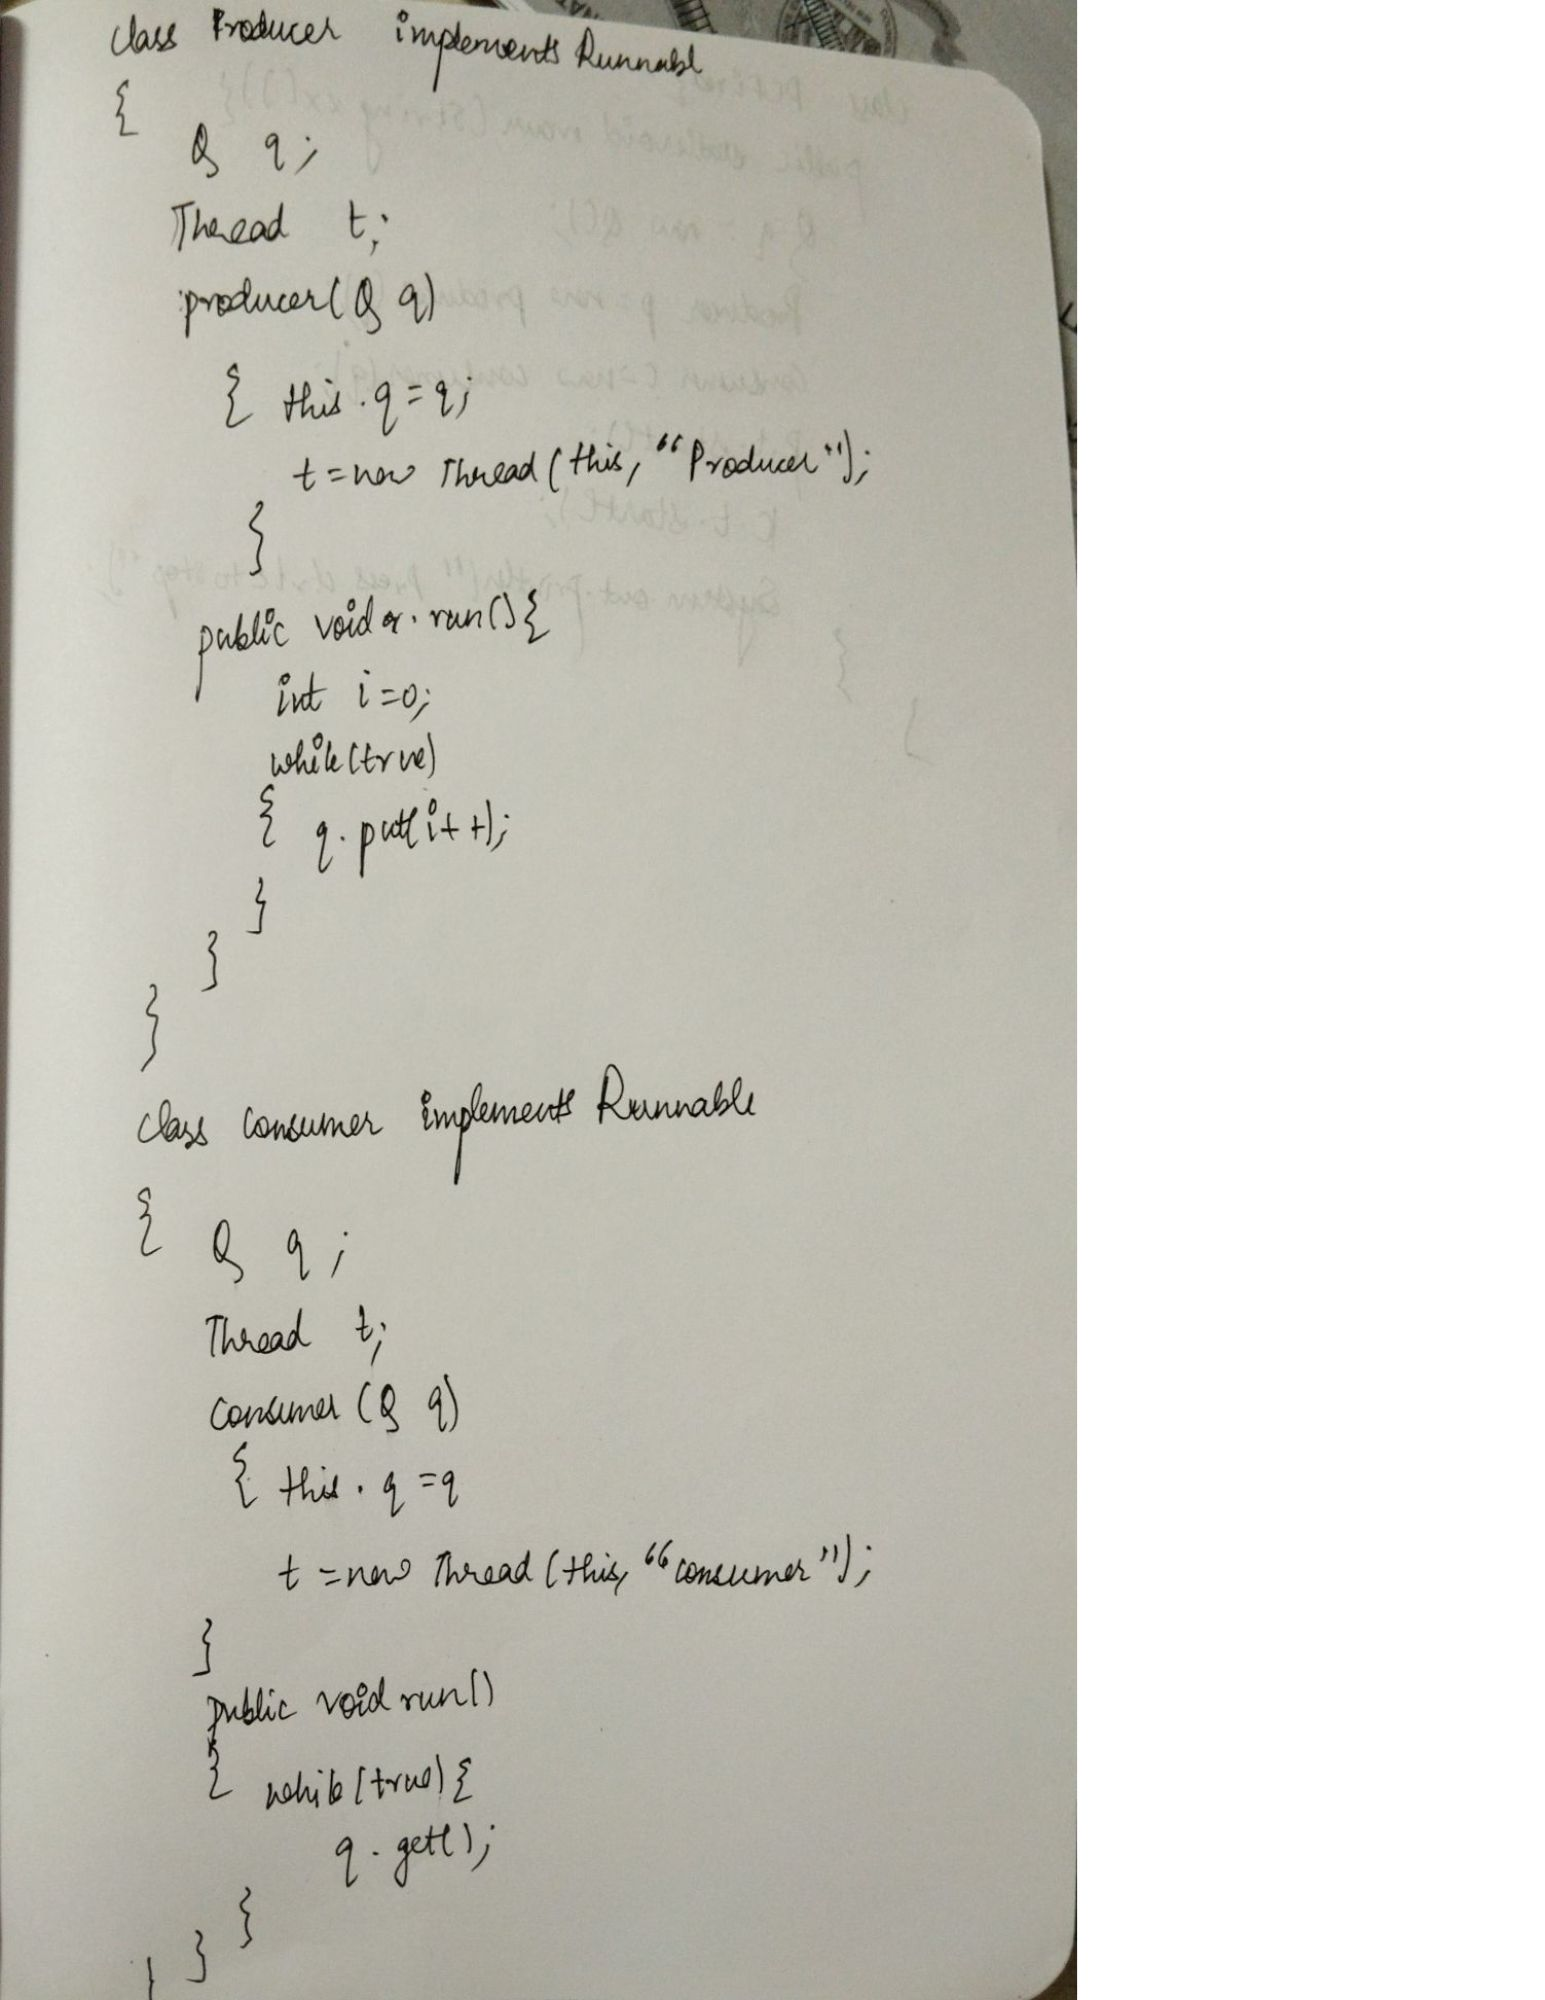 class Producer implements Runnabl
{
Q q;
Thread t;
producer(Q q)
{ this.q=q;
t=new Thread(this, "Producer");
}
public void r.run(){
int i=0;
while(true)
{ q.put(i++);
}
}
}
class Consumer implements Runnable
{
Q q;
Thread t;
Consumer (Q q)
{ this.q=q
t=new Thread(this, "consumer");
}
public void run()
{ while(true){
q.get();
}
}
}